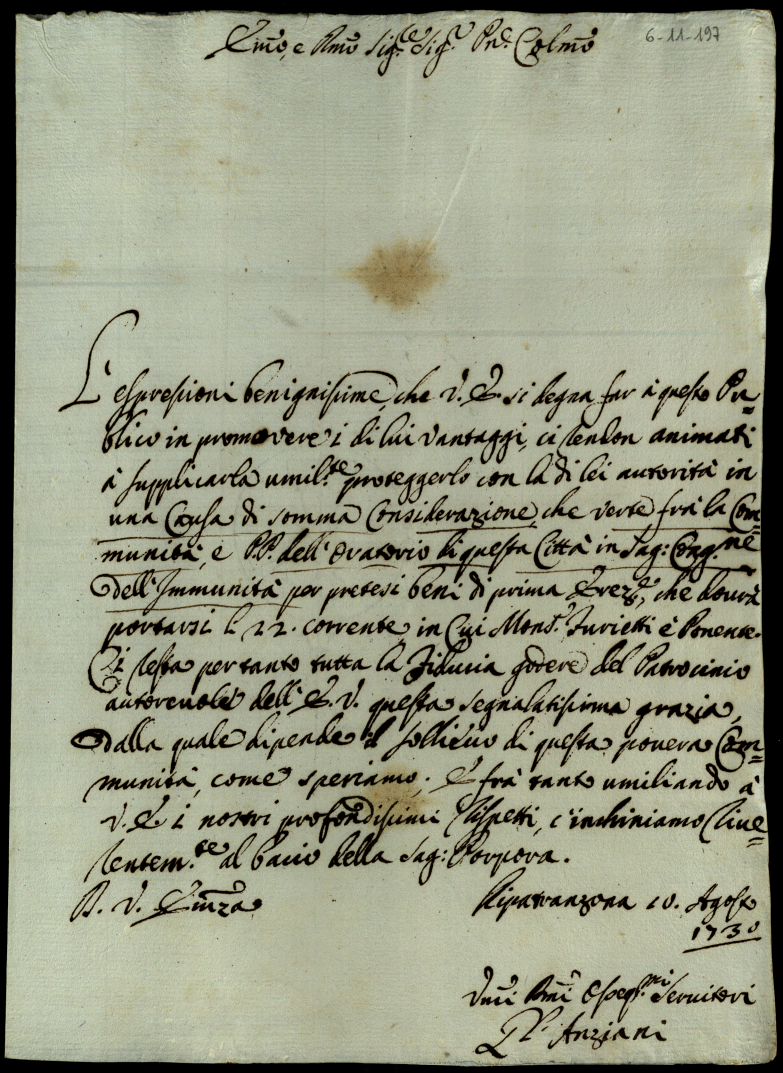 Em̃o, e Rm̃o Sig.re Sig.r Pñe Colm̃o
6-11-197
L'espressioni benignissime, che V. E. si degna far à questo Pu=
blico in promovere i di lui vantaggi, ci rendon animati
à supplicarla umil.te proteggerlo con la di lei autorità in
una Causa di somma Considerazione, che verte frà la Com=
munità, e PP. dell'Oratorio di questa Città in Sag: Cong.ne
dell'Immunità per pretesi beni di prima Erez.e, che dovrà
portarsi li 22. corrente in cui Mons.r Furietti è Ponente.
Ci resta per tanto tutta la Fiducia godere del Patrocinio
autorevole dell'E. V. questa segnalatissima grazia,
dalla quale dipende il sollievo di questa povera Com=
munità, come speriamo; E frà tanto umiliando à
V. E. i nostri profondissimi rispetti, c'inchiniamo rive=
rentem.te al bacio della Sag: Porpora.
D. V. Em̃za
Ripatranzona 10. Agosto
1730
Um̃i Dm̃i Osseq.mi Servitori
Gl' Anziani